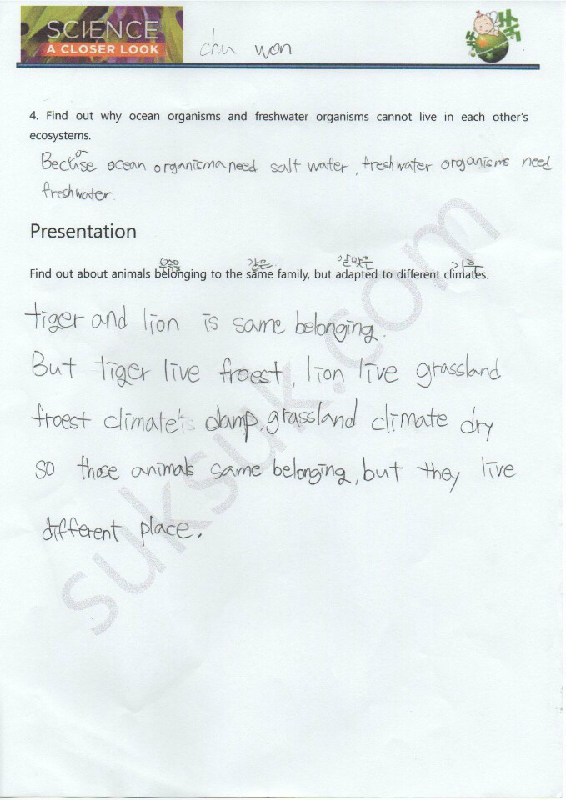 SCIENCE
A CLOSER LOOK
chu won
4. Find out why ocean organisms and freshwater organisms cannot live in each other's
ecosystems.
Because ocean organicma need salt water, freshwater organisms need
freshwater.
Presentation
같은
기후
Find out about animals belonging to the same family, but adapted to different climates.
tiger and lion is same belonging.
But tiger live froest, lion live grassland
froest climate's damp, grassland climate dry
so those animals same belonging, but they live
different place.
suksuk.com